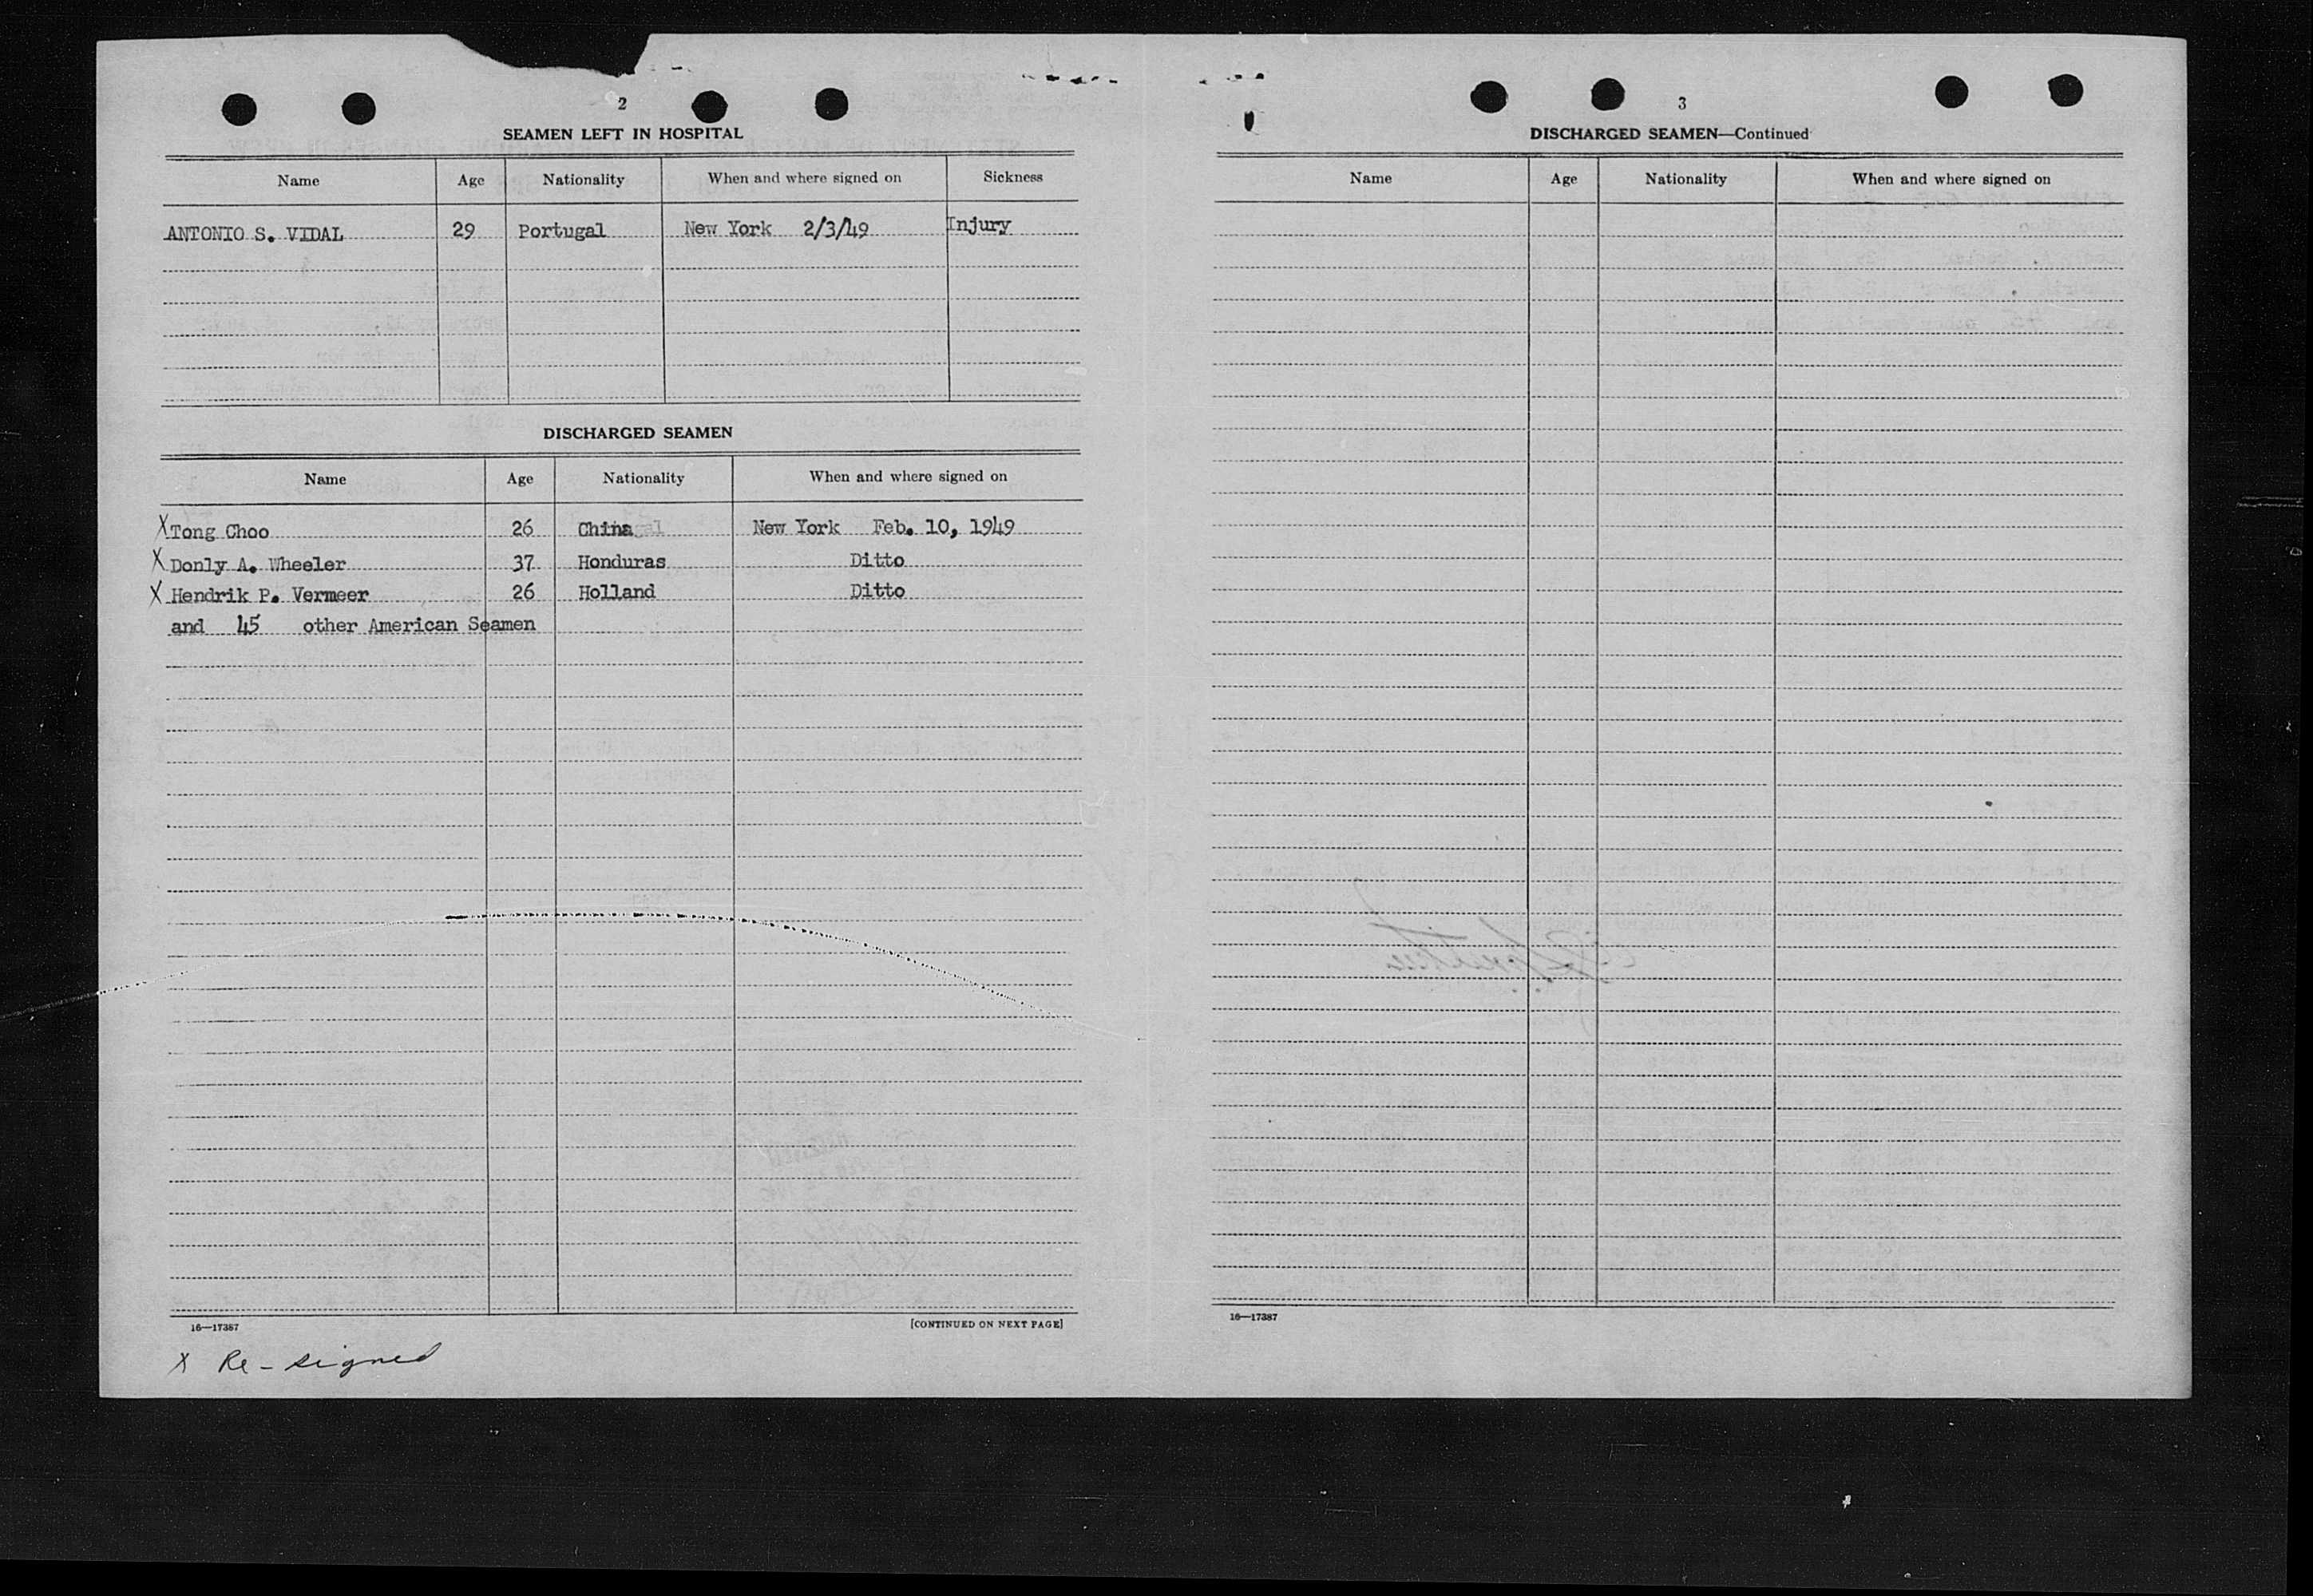 2
SEAMEN LEFT IN HOSPITAL
Name Age Nationality When and where signed on Sickness
ANTONIO S. VIDAL 29 Portugal New York 2/3/49 Injury
DISCHARGED SEAMEN
Name Age Nationality When and where signed on
X Tong Choo 26 China New York Feb. 10, 1949
X Donly A. Wheeler 37 Honduras Ditto
X Hendrik P. Vermeer 26 Holland Ditto
and 45 other American Seamen
16—17387 [CONTINUED ON NEXT PAGE]
X Re-signed
3
DISCHARGED SEAMEN—Continued
Name Age Nationality When and where signed on
16—17387